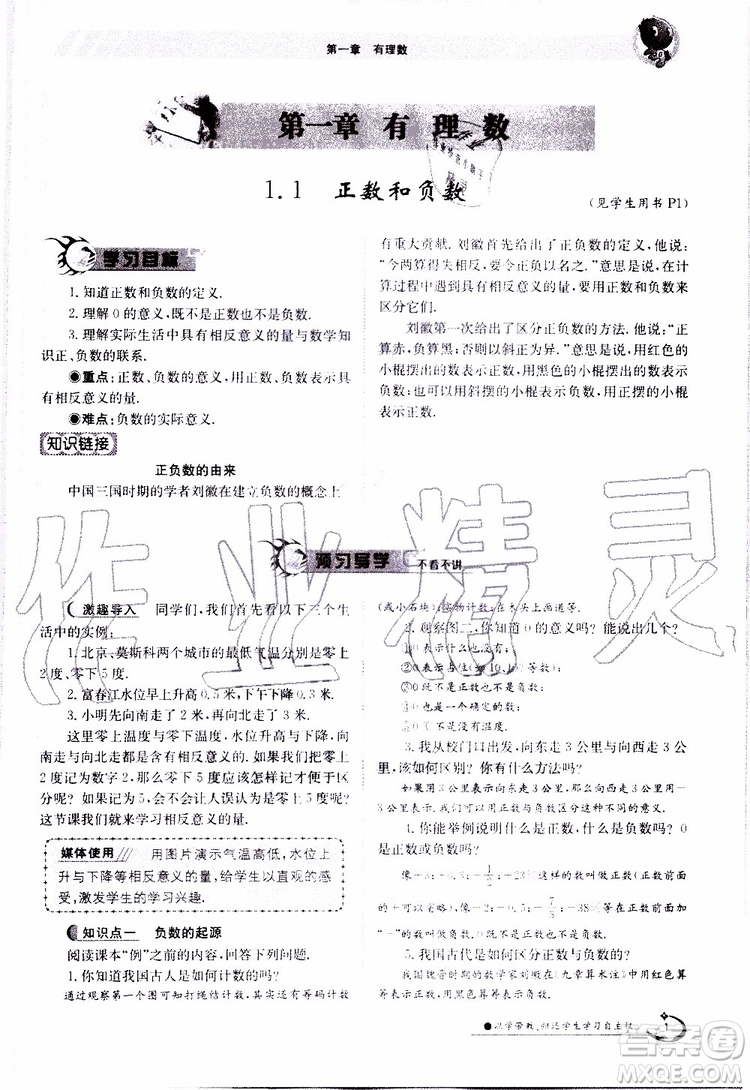 第一章 有理数
第一章 有 理 数
1.1 正数和负数
(见学生用书 P1)
学习目标
1. 知道正数和负数的定义.
2. 理解 0 的意义,既不是正数也不是负数.
3. 理解实际生活中具有相反意义的量与数学知
识正、负数的联系.
◉重点:正数、负数的意义,用正数、负数表示具
有相反意义的量.
◉难点:负数的实际意义.
知识链接
正负数的由来
中国三国时期的学者刘徽在建立负数的概念上
有重大贡献. 刘徽首先给出了正负数的定义,他说:
“今两算得失相反,要令正负以名之.”意思是说,在计
算过程中遇到具有相反意义的量,要用正数和负数来
区分它们.
刘徽第一次给出了区分正负数的方法. 他说:“正
算赤,负算黑;否则以斜正为异.”意思是说,用红色的
小棍摆出的数表示正数,用黑色的小棍摆出的数表示
负数;也可以用斜摆的小棍表示负数,用正摆的小棍
表示正数.
预习导学 不看不讲
激趣导入 同学们,我们首先看以下三个生
活中的实例:
1. 北京、莫斯科两个城市的最低气温分别是零上
2 度、零下 5 度.
2. 富春江水位早上升高 0.5 米,下午下降 0.3 米.
3. 小明先向南走了 2 米,再向北走了 3 米.
这里零上温度与零下温度,水位上升与下降,向
南走与向北走都是具有相反意义的量. 我们把零上
2 度记为数字 2,那么零下 5 度怎样记才能便于区
分呢?如果记为 5,会不会让人误认为是零上 5 度呢?
这节课我们就来学习相反意义的量.
媒体使用 用图片演示气温高低,水位上
升与下降等相反意义的量,给学生以直观的感
受,激发学生的学习兴趣.
知识点一 负数的起源
阅读课本“例”之前的内容,回答下列问题.
1. 你知道我国古人是如何计数的吗?
通过观察第一个图可知打绳结计数,还有等码计数
(或小石块),实物计数,在木头上画道等.
2. 观察图二,你知道 0 的意义吗?能说出几个?
①0 表示没有;
②0 表示占位(如 10,100 等数);
③0 既不是正数也不是负数;
④0 也是一个确定的数;
⑤0 表示不是没有温度.
3. 我从校门口出发,向东走 3 公里与向西走 3 公
里,该如何区别?你有什么方法?
如果用 3 公里表示向东走 3 公里,那么向西走 3 公里用-
3 公里表示,我们可以用正数与负数区分它们的不同意义.
4. 你能举例说明什么是正数,什么是负数吗?0
是正数吗?
5. 我国古代是如何区分正数与负数的?
我国魏晋时期的数学家刘徽在《九章算术注》中用红色算
筹表示正数,黑色算筹表示负数.
1
作业精灵
答案圈